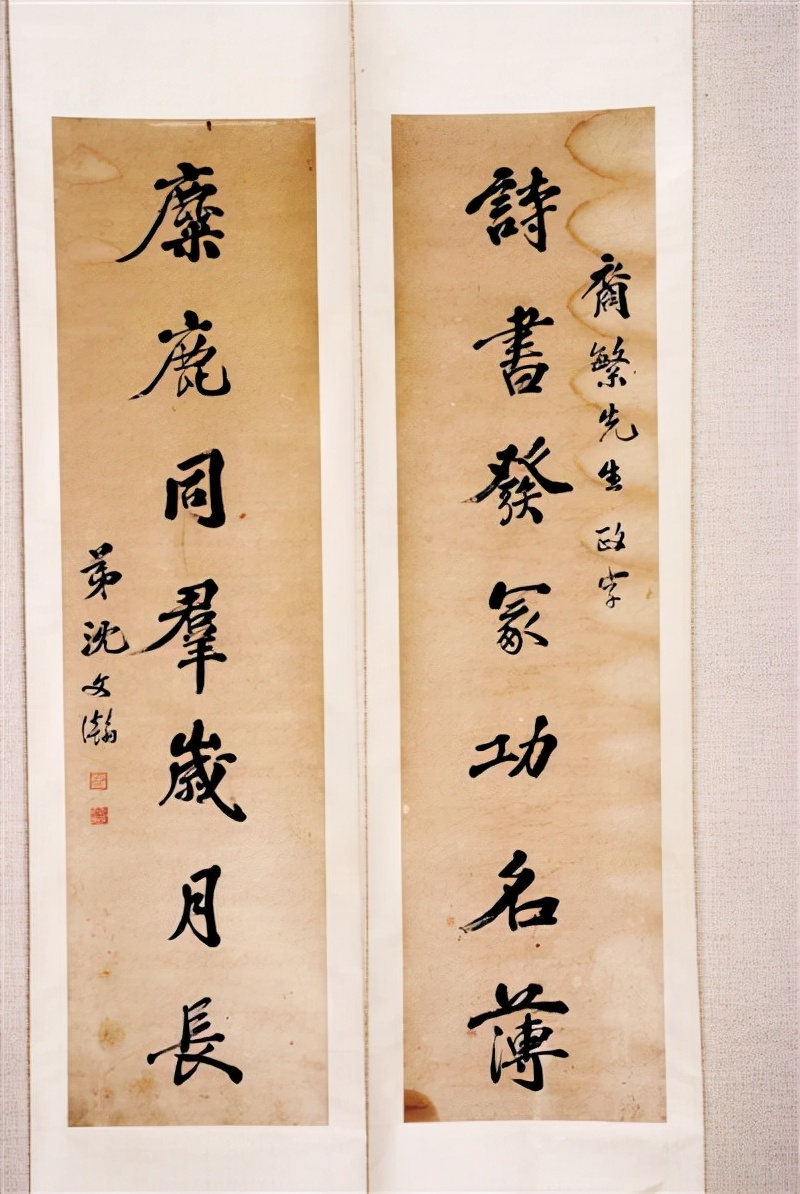 繁先生政字
詩書發冢功名薄
麋鹿同羣歲月長
弟沈文瀚